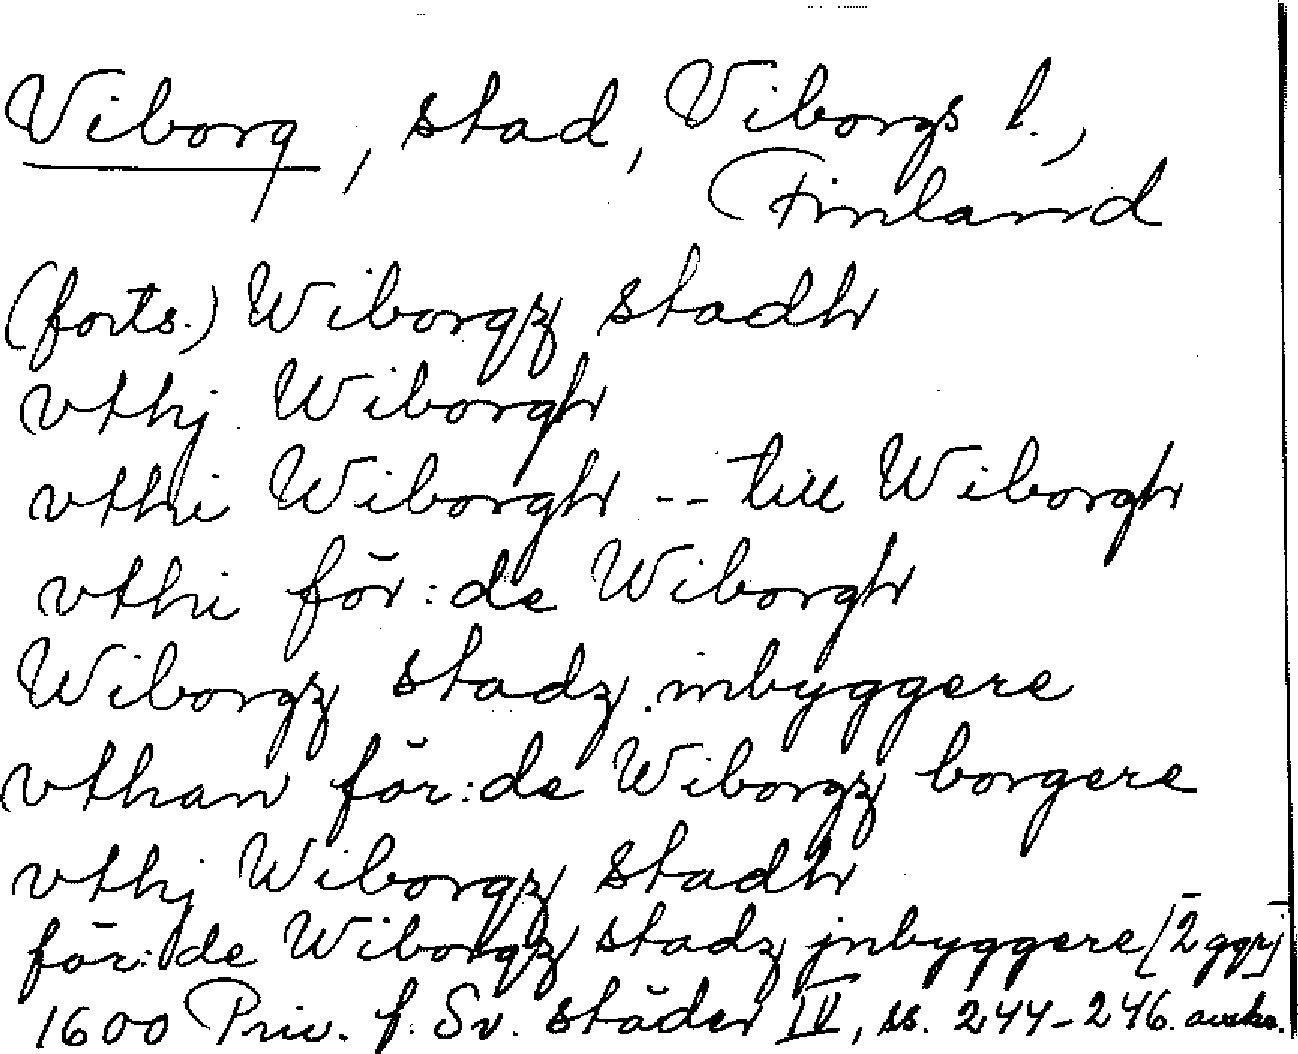 Viborg, stad, Viborgs l.,
Finland
(forts.) Wiborgz stadh
vthj Wiborgh
vthi Wiborgh -- till Wiborgh
vthi för:de Wiborgh
Wiborgz stadz inbyggere
vthan för:de Wiborgz borgere
vthj Wiborgz stadh
för:de Wiborgz stadz jnbyggere [2 ggr]
1600 Priv. f. Sv. städer IV, ss. 244-246. avskr.